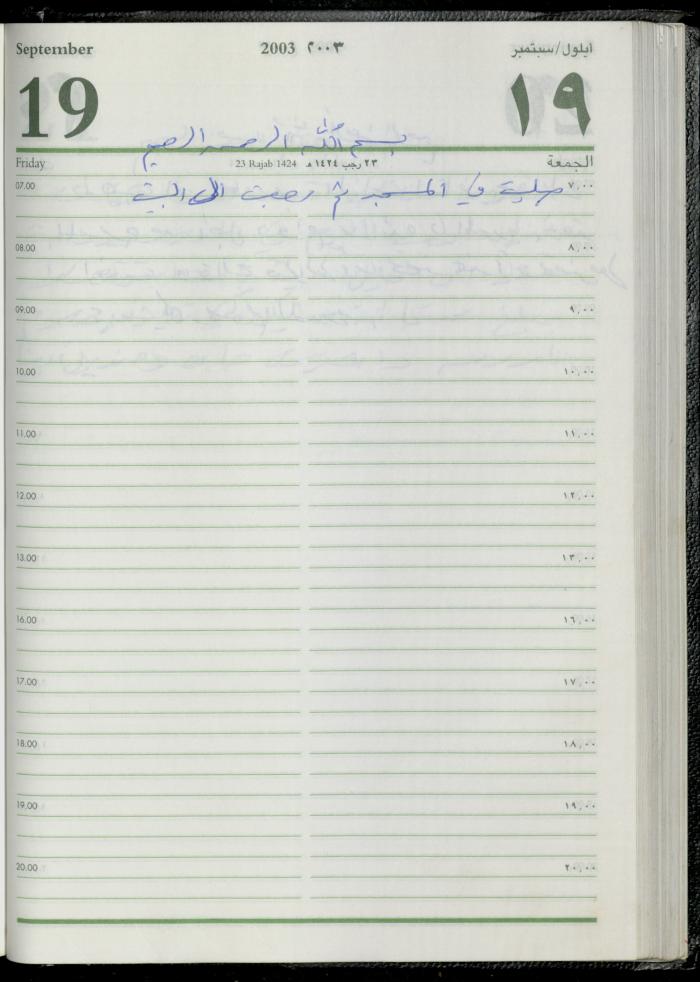 September 2003 ٢٠٠٣ ايلول/سبتمبر
19 ١٩
بسم اللّه الرحمن الرحيم
Friday 23 Rajab 1424 ٢٣ رجب ١٤٢٤ هـ الجمعة
07.00 ٧,٠٠
صلية في المسجد ثم رحبت الى البيت
08.00 ٨,٠٠
09.00 ٩,٠٠
10.00 ١٠,٠٠
11.00 ١١,٠٠
12.00 ١٢,٠٠
13.00 ١٣,٠٠
16.00 ١٦,٠٠
17.00 ١٧,٠٠
18.00 ١٨,٠٠
19.00 ١٩,٠٠
20.00 ٢٠,٠٠